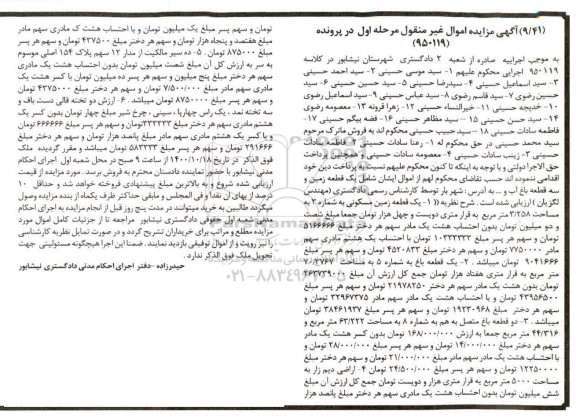 (۹/۴۱) آگهی مزایده اموال غیر منقول مرحله اول در پرونده
(۹۵۰۱۱۹)
به موجب اجراییه صادره از شعبه ۲ دادگستری شهرستان نیشابور در کلاسه
۹۵۰۱۱۹ اجرایی محکوم علیهم ۱- سید موسی حسینی ۲- سید احمد حسینی
۳- سید اسماعیل حسینی ۴- سیدرضا حسینی ۵- سید حسین حسینی ۶- سید
حسین رضوی ۷- سید قاسم رضوی ۸- سید عباس حسینی ۹- سید اسماعیل رضوی
۱۰- خدیجه حسینی ۱۱- خیرالنساء حسینی ۱۲- زهرا قرونه ۱۳- معصومه رضوی
۱۴- سید حسن حسینی ۱۵- سید مظاهر حسینی ۱۶- فضه بیگم حسینی ۱۷-
فاطمه سادات حسینی ۱۸- سید حبیب حسینی محکوم اند به فروش ماترک مرحوم
سید محمد حسینی در حق محکوم له ۱- رعنا سادات حسینی ۲- فاطمه سادات
حسینی ۳- زینب سادات حسینی ۴- معصومه سادات حسینی و همچنین پرداخت
حق الاجرا دولتی و با توجه به اینکه تا کنون محکوم علیهم نسبت به پرداخت دین خود
اقدامی ننموده اند حسب تقاضای محکوم لهم از اموال ایشان شامل یک قطعه زمین و
سه قطعه باغ آب و ... به آدرس : شهر یار توسط کارشناس رسمی دادگستری (مهندس
لگزیان) ارزیابی شده است. شرح نظریه (( ۱- یک قطعه زمین مسکونی به شماره ۳ به
مساحت ۳/۲۵۸ متر مربع به قرار متری دویست و چهل هزار تومان جمعا مبلغ شصت
و دو میلیون تومان بدون احتساب هشت یک مادر سهم هر دختر مبلغ ۵۱۶۶۶۶۶
تومان و سهم هر پسر مبلغ ۱۰۳۳۳۳۳۳ تومان با احتساب هشت یک هشتم مادری سهم
مادر ۷۷۵۰۰۰۰ تومان و سهم هر دختر مبلغ ۴۵۲۰۸۳۳ تومان و سهم هر پسر مبلغ
۹۰۴۱۶۶۶ تومان میباشد . ۲- یک قطعه باغ به شماره ۵ به مساحت
متر مربع به قرار متری هفتاد هزار تومان جمع کل ارزش آن مبلغ
تومان بدون هشت یک مادر سهم هر دختر مبلغ ۲۱۹۷۸۲۵۰ تومان و سهم هر پسر مبلغ
۴۳۹۵۶۵۰۰ تومان و با احتساب هشت یک مادر سهم مادر ۳۲۹۶۷۳۷۵ تومان و
سهم هر دختر مبلغ ۱۹۲۳۰۹۶۸ تومان و سهم هر پسر مبلغ ۳۸۴۶۱۹۳۷ تومان
میباشد . ۳- دو قطعه باغ متصل به هم به شماره ۸ به مساحت ۶۳/۲۲۲ متر مربع و
۴۴/۳۱۶ متر مربع جمعا به ارزش ۱۶۸/۰۰۰/۰۰۰ تومان بدون کسر هشت یک مادر
سهم هر دختر مبلغ ۱۴/۰۰۰/۰۰۰ تومان و سهم هر پسر مبلغ ۲۸/۰۰۰/۰۰۰ تومان و
با احتساب هشت یک مادر سهم مادر مبلغ ۲۱/۰۰۰/۰۰۰ تومان و سهم هر دختر مبلغ
۱۲۲۵۰۰۰۰ تومان و سهم هر پسر مبلغ ۲۴/۵۰۰/۰۰۰ تومان ۴- اراضی دیم زار به
مساحت ۵۰۰۰ متر مربع به قرار متری هزار و دویست تومان جمع کل ارزش آن مبلغ
شش میلیون تومان بدون احتساب هشت یک مادری سهم هر دختر مبلغ پانصد هزار
تومان و سهم پسر مبلغ یک میلیون تومان و با احتساب هشت ک مادری سهم مادر
مبلغ هفتصد و پنجاه هزار تومان و سهم هر دختر مبلغ ۴۳۷۵۰۰ تومان و سهم هر پسر
مبلغ ۸۷۵۰۰۰ تومان . ۵- ده سیر مالکیت از مدار ۱۲ سهم پلاک ۱۵۴ اصلی موسم
به سر به ارزش کل آن مبلغ شصت میلیون تومان بدون احتساب هشت یک مادری
سهم هر دختر مبلغ پنج میلیون و سهم هر پسر ده میلیون تومان با کسر هشت یک
مادری سهم مادر مبلغ ۷/۵۰۰/۰۰۰ تومان و سهم هر دختر مبلغ ۴۳۷۵۰۰۰ تومان
و سهم هر پسر مبلغ ۸۷۵۰۰۰۰ تومان میباشد . ۶- ارزش دو تخته قالی دست باف و
سه تخته نمد ، یک راس چهارپا ، سینی ، چرخ شیر مبلغ چهار تومان بدون کسر یک
هشتم مادری سهم هر دختر مبلغ ۳۳۳۳۳۳ تومان و سهم هر پسر مبلغ ۶۶۶۶۶۶ تومان
و با کسر یک هشتم مادری سهم مادر مبلغ پانصد هزار تومان و سهم هر دختر مبلغ
۲۹۱۶۶۶ تومان و سهم هر پسر مبلغ ۵۸۳۳۳۳ تومان میباشد و مقرر گردیده ملک
فوق الذکر در تاریخ ۱۴۰۰/۱۰/۱۸ از ساعت ۹ صبح در محل شعبه اول اجرای احکام
مدنی نیشابور با حضور نماینده دادستان محترم به فروش برسد . مورد مزایده از قیمت
ارزیابی شده شروع و به بالاترین مبلغ پیشنهادی فروخته خواهد شد و حداقل ۱۰
درصد از بهای آن نقدا و فی المجلس و مابقی حداکثر ظرف یکماه از بنده مزایده وصول
میگردد طالبین به خرید میتوانند در مدت پنج روز قبل از انجام مزایده به اجرای احکام
مدنی شعبه اول حقوقی دادگستری نیشابور مراجعه تا از جزئیات کامل اموال مورد
مزایده مطلع و مراتب برای خریداران تشریح گردد و در صورت تمایل نظریه کارشناسی
را نیز رویت و از اموال توقیفی بازدید نمایند . ضمنا این اجرا هیچگونه مسئولیتی جهت
تحویل ملک فوق الذکر ندارد .
حیدرزاده -دفتر اجرای احکام مدنی دادگستری نیشابور
۰۲۱-۸۸۳۴۹۶۷۰